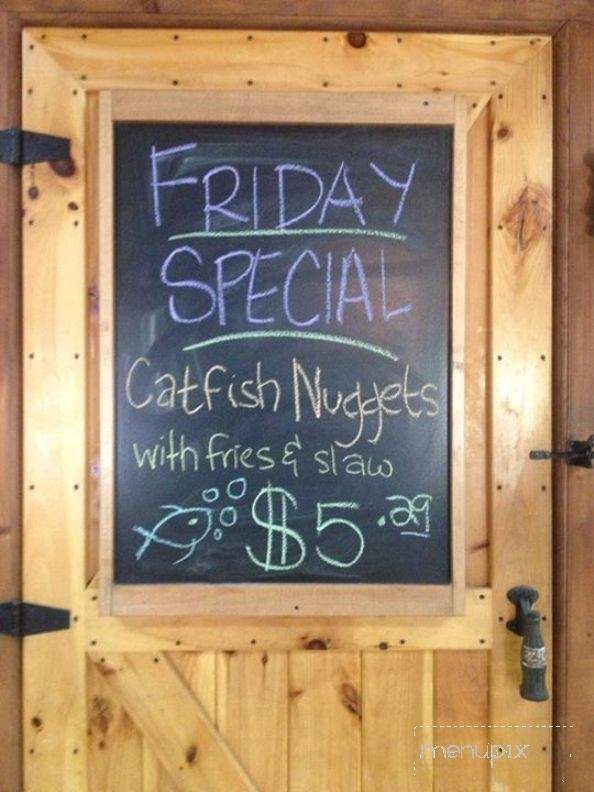 FRIDAY
SPECIAL
Catfish Nuggets
with fries & slaw
$5.29
menupix